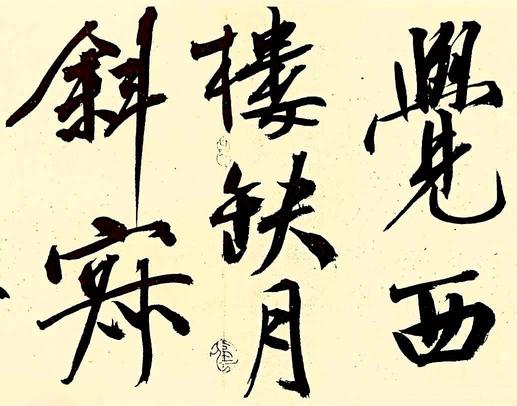 覺西
樓缺月
斜